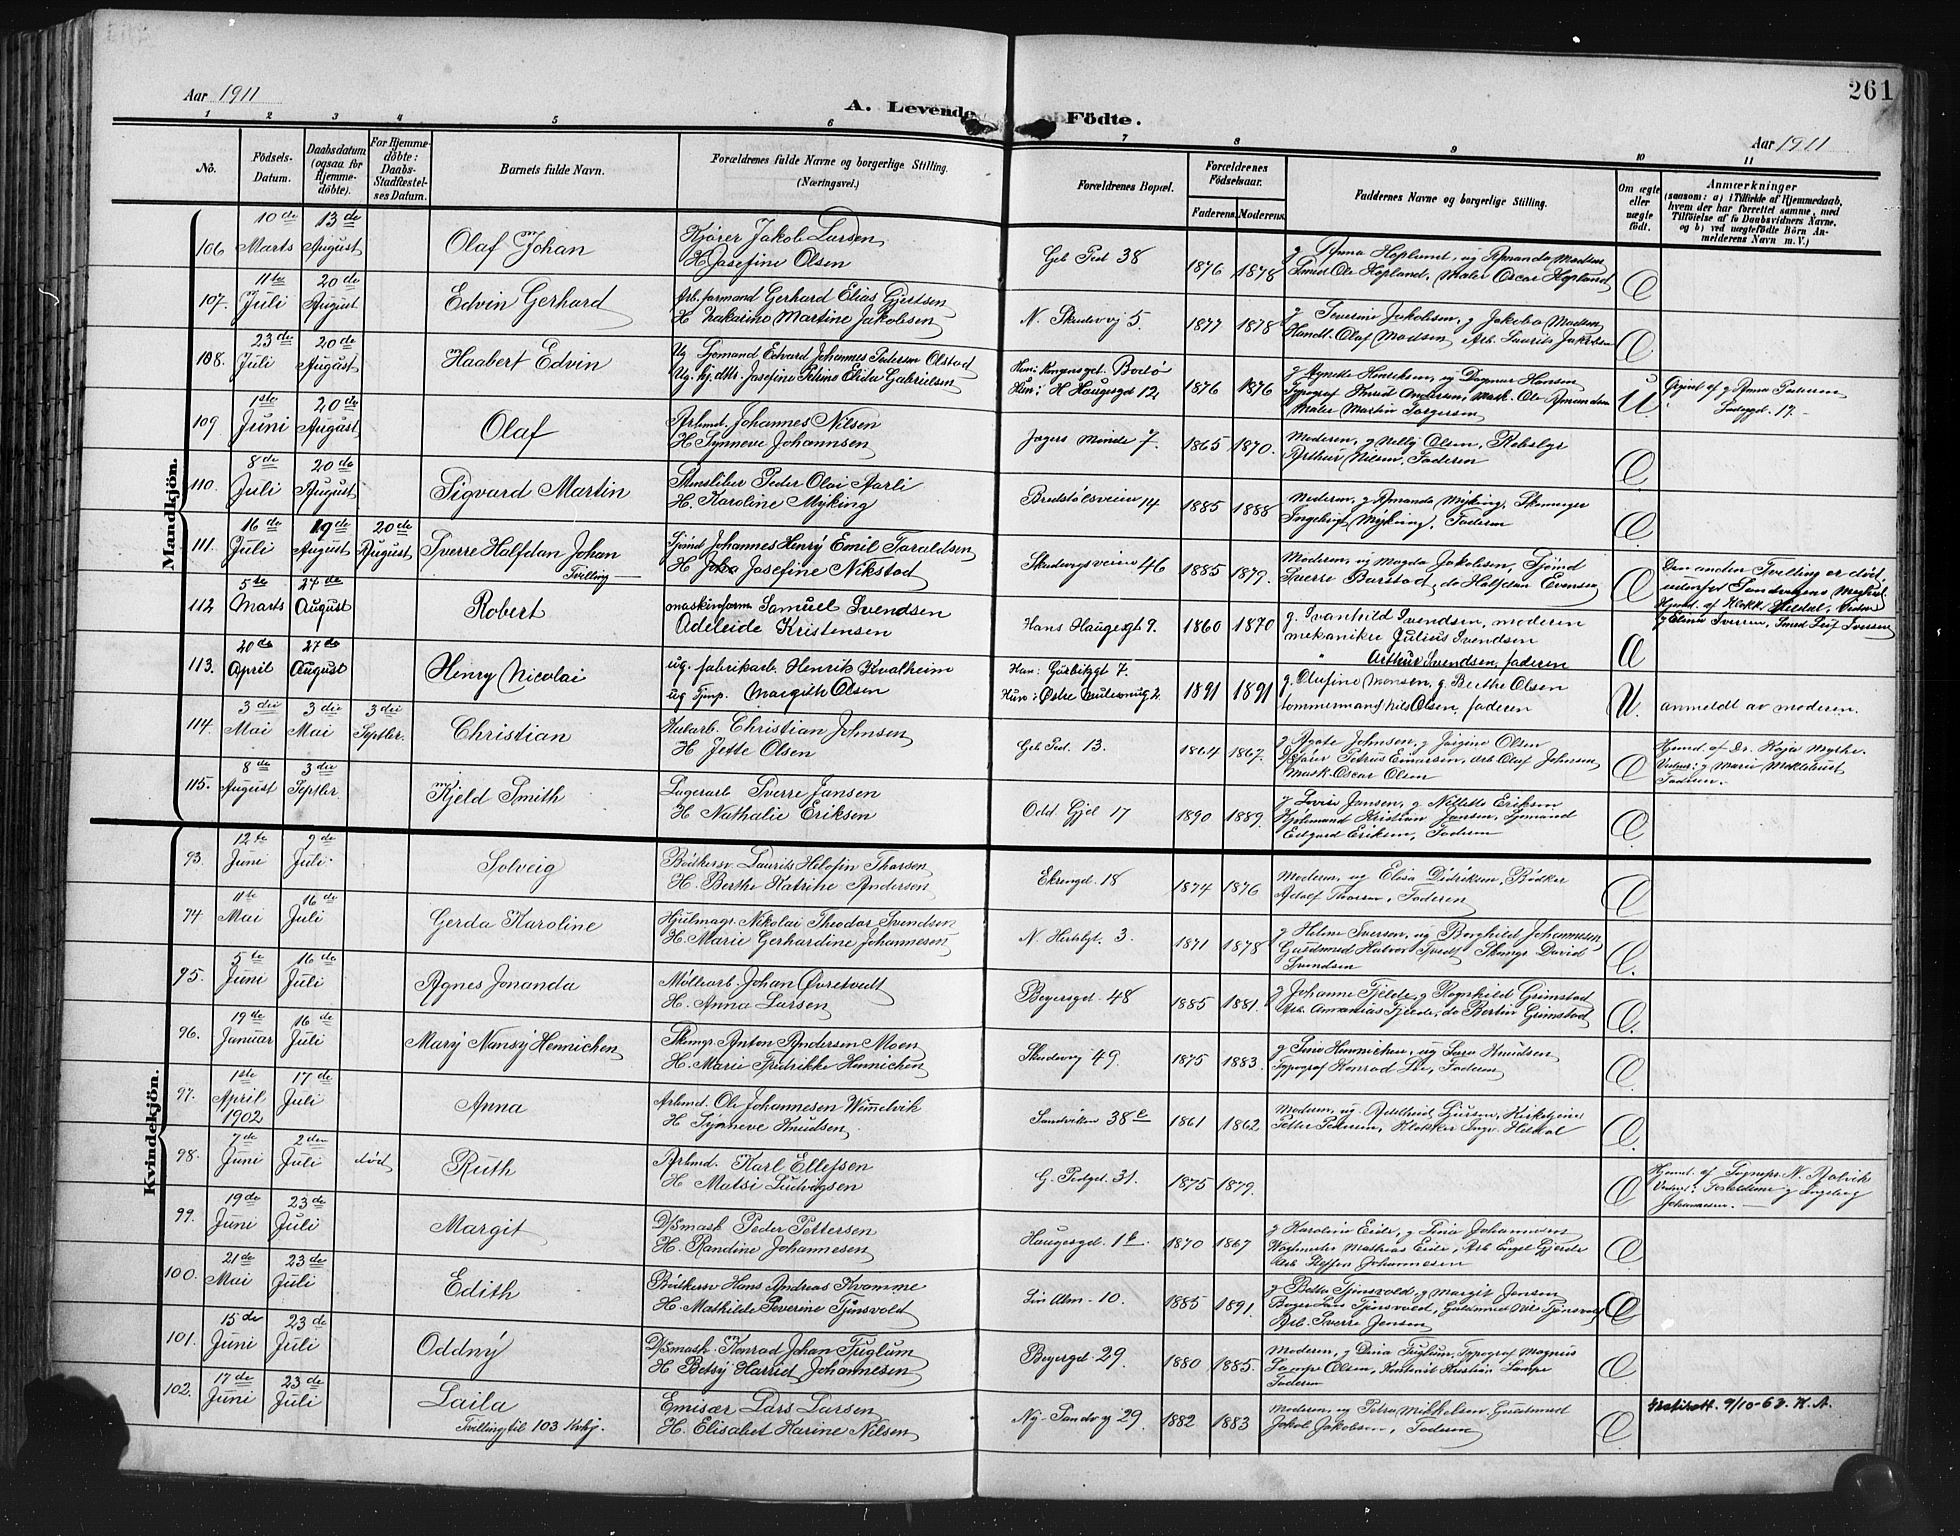 261
Aar 1911
A. Levende Födte.
Aar 1911
1 2 3 4 5 6 7 8 9 10 11
No.
Födsels-Datum.
Daabsdatum (ogsaa for Hjemmedöbte).
For Hjemmedöbte: Daabs-Stadfæstelses Datum.
Barnets fulde Navn.
Forældrenes fulde Navne og borgerlige Stilling. (Næringsvei.)
Forældrenes Bopæl.
Forældrenes Födselsaar.
Faderens. Moderens.
Faddernes Navne og borgerlige Stilling.
Om ægte eller uægte födt.
Anmærkninger
(saasom: a) i Tilfælde af Hjemmedaab, hvem der har forrettet samme, med Tilföielse af to Daabsvidners Navne, og b) ved uægtefödte Börn Anmelderens Navn m. V.)
Mandkjön.
106 10de Marts 13de August Olaf Johan
Kjører Jakob Larsen
H. Josefine Olsen
Geb Ped 38 1876 1878
g Anna Hopland, ug Amanda Madsen
Smed Ole Hopland, Maler Oscar Hopland
107. 11te Juli 20de August Edvin Gerhard
Arb.formand Gerhard Elias Gjertsen
H. Zakarine Martine Jakobsen
N. Skudevg 5. 1877 1878
g Severine Jakobsen, g Jakoba Madsen
Handl. Olaf Madsen Arb. Laurits Jakobsen
108. 23de Juli 20de August Haabert Edvin
Ug Sjømand Edvard Johannes Pedersen Olstad
Ug. Josefine Petrine Elida Gabrielsen
Han: Kongensgt. Bodø
Hun: H Haugesgt 12, 1876 1876
g Agnette Henriksen, ug Dagmar Hansen
Typograf Knud Andersen, Mask. Ole Amundsen
Maler Martin Torgersen
U.
Opgivet af g Anna Pedersen
17
109 1ste Juni 20de August Olaf
Arbmd. Johannes Nilsen
H Synneve Johannsen
Jægers Minde 7. 1865 1870.
Moderen, g Nelly Olsen, Rebslgr
Arthur Nilsen, Faderen
110. 8de Juli 20de August Sigvard Martin
Stensliber Peder Olai Aarli
H. Karoline Myking
Brødstølsveien 14 1885 1888
Moderen, g Amanda Myking, Skomager
Ingebrigt Myking, Faderen
111. 16de Juli 19de August 20de August Sverre Halfdan Johan
Tvilling
Sjømd Johannes Henrÿ Emil Taraldsen
H. Josefine Nikstad
Skudevigsveien 46 1885 1879.
Moderen, ug Magda Jakobsen, Sjømd
Sverre Barstad, do Halfdan Evensen
Den anden Tvilling er død,
udenfor Sandvikens Menighed
Hjmd. af Klokk Heldal, Vidner
g Eline Iversen, Smed Leif Iversen
112 5te Marts 27de August Robert
maskinform. Samuel Svendsen
Adeleide Kristensen
Hans Haugesgt 9. 1860 1870
g. Svanhild Svendsen, moderen
mekaniker Julius Svendsen
" Arthur Svendsen, faderen
113. 20de April 27de August Henry Nicolai
ug. fabrikarb. Henrik Kvalheim
ug Tjnp. Margith Olsen
Han: Gørbitzgt 7.
Hun: Østre Muresmug 2. 1891 1891
g. Olufine Monsen, g. Berthe Olsen
tommermand Nils Olsen, faderen
U.
anmeldt av moderen.
114. 3die Mai 3die Mai 3die Septbr. Christian
Christian Johnsen
H. Jette Olsen
Geb Ped. 13. 1864 1867.
g Agate Johnsen, g Jørgine Olsen
Petrus Einarsen, Arb Olaf Johnsen
Mask. Oscar Olsen
Hjmd. af Dr. Kaja Myhre.
Vidner: g Marie Meklebust
Faderen.
115. 8de August 3die Septbr. Kjeld Smith
Lagerarb Sverre Jansen
H Nathalie Eriksen
Odd Gjel 17 1890 1889.
g Lovise Jansen, g Nillette Eriksen
Kristian Jansen, Sjømand
Edgard Eriksen, Faderen
Kvindekjön.
93. 12te Juni 9de Juli. Solveig
Bødkersv Laurits Helofin Thorsen
H. Berthe Katrine Andersen
Ekrengt 18 1874 1876
Moderen, ug Elisa Didriksen, Bødker
Adolf Thorsen, Faderen
94 11te Mai 16de Juli Gerda Karoline
Hjulmagr. Nikolai Theodor Svendsen
H. Marie Gerhardine Johannesen
N. 3 1871 1878
g Helene Iversen, ug Borghild Johannesen
Guldsmed Halvor Tveit, Skomgr David
Svendsen
95. 5te Juni 16de Juli Agnes Jonanda
Møllearb. Johan Øvretvedt
H. Anna Larsen
Beyersgt. 48 1885 1881.
g Johanne Fjelde, g Ragnhild Grimstad
Arb. Annanias Fjelde, do Bertin Grimstad
96. 19de Januar 16de Juli Marÿ Nansÿ Hennichen
Skmgr. Anton Andersen Moen
H. Marie Fredrikke Hennichen
Skudevg 49. 1875 1883.
g Hennichen, ug Sara Knudsen
Typograf Konrad Lie, Faderen
97. 1ste April 1902 17de Juli Anna
Arbmd. Ole Johannesen Wemelvik
H. Synneve Knudsen
Sandviken 38e 1861 1862
Moderen, ug. Adelheid Sjursen, Kirketjener
Petter Pedersen, Klokker Ingv. Heldal
98. 7de Juni 2den Juli død Ruth
Arbmd. Karl Ellefsen
H Matsi Ludvigsen
G. Pedgt. 31. 1875 1879.
Hjmd. af Sognepr. N. Rolvik
Vidner: Forældrene g Ingeborg
Johannesen.
99. 19de Juni 23de Juli Margit
D/Smask Peder Pettersen
H. Randine Johannesen
Haugesgt. 1e. 1870 1867
g Karoline Eide, g Tina Johannesen
Vagtmester Mathias Eide, Arb Engel Gjerde
Arb. Steffen Johannesen
100. 21de Mai 23de Juli Edith
Bødkersv Hans Andreas Kvamme
H. Mathilde Severine Tjønsvold
Lin Alm- 10. 1885 1891.
g Betta Tjønsvold, g Margit Jensen
Tjønsvold, Guldsmed Nils Tjønsvold
Arb. Sverre Jensen
101. 15de Juni 23de Juli Oddnÿ
D/Smask. Konrad Johan Fuglum
H Betsÿ Harriet Johannesen
Beyergt 29. 1880 1885.
Moderen, g Dina Fuglum, Typograf Magnus
Lampe Olsen, Kristian Lampe
Faderen
102. 17de Juni 23de Juli Laila
Tvilling til 103 Kvkj.
Emisær Lars Larsen
H. Elisabet Karine Nilsen
Ny-Sandvg 29. 1882 1883
Moderen, ug Petra Mikkelsen, Guldsmed
Jakob Jakobsen, Faderen
9/10-63. K.A.